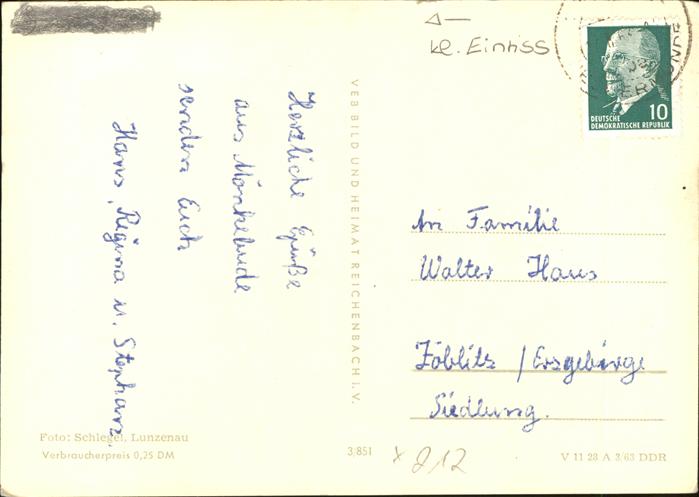 kl. Einriss
10
DEUTSCHE
DEMOKRATISCHE REPUBLIK
Herzliche Grüße
aus Mönkebude
senden Euch
Hans, Regina u. Stephan.
VEB BILD UND HEIMAT REICHENBACH I. V.
An Familie
Walter Haus
Zöblitz / Erzgebirge
Siedlung.
Foto: Schlegel, Lunzenau
Verbraucherpreis 0,25 DM
3/851
V 11 28 A 3/63 DDR